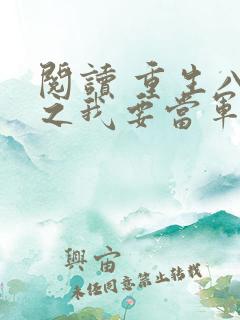 閱讀 重生八
之我要當軍
興宙
未经同意禁止转载